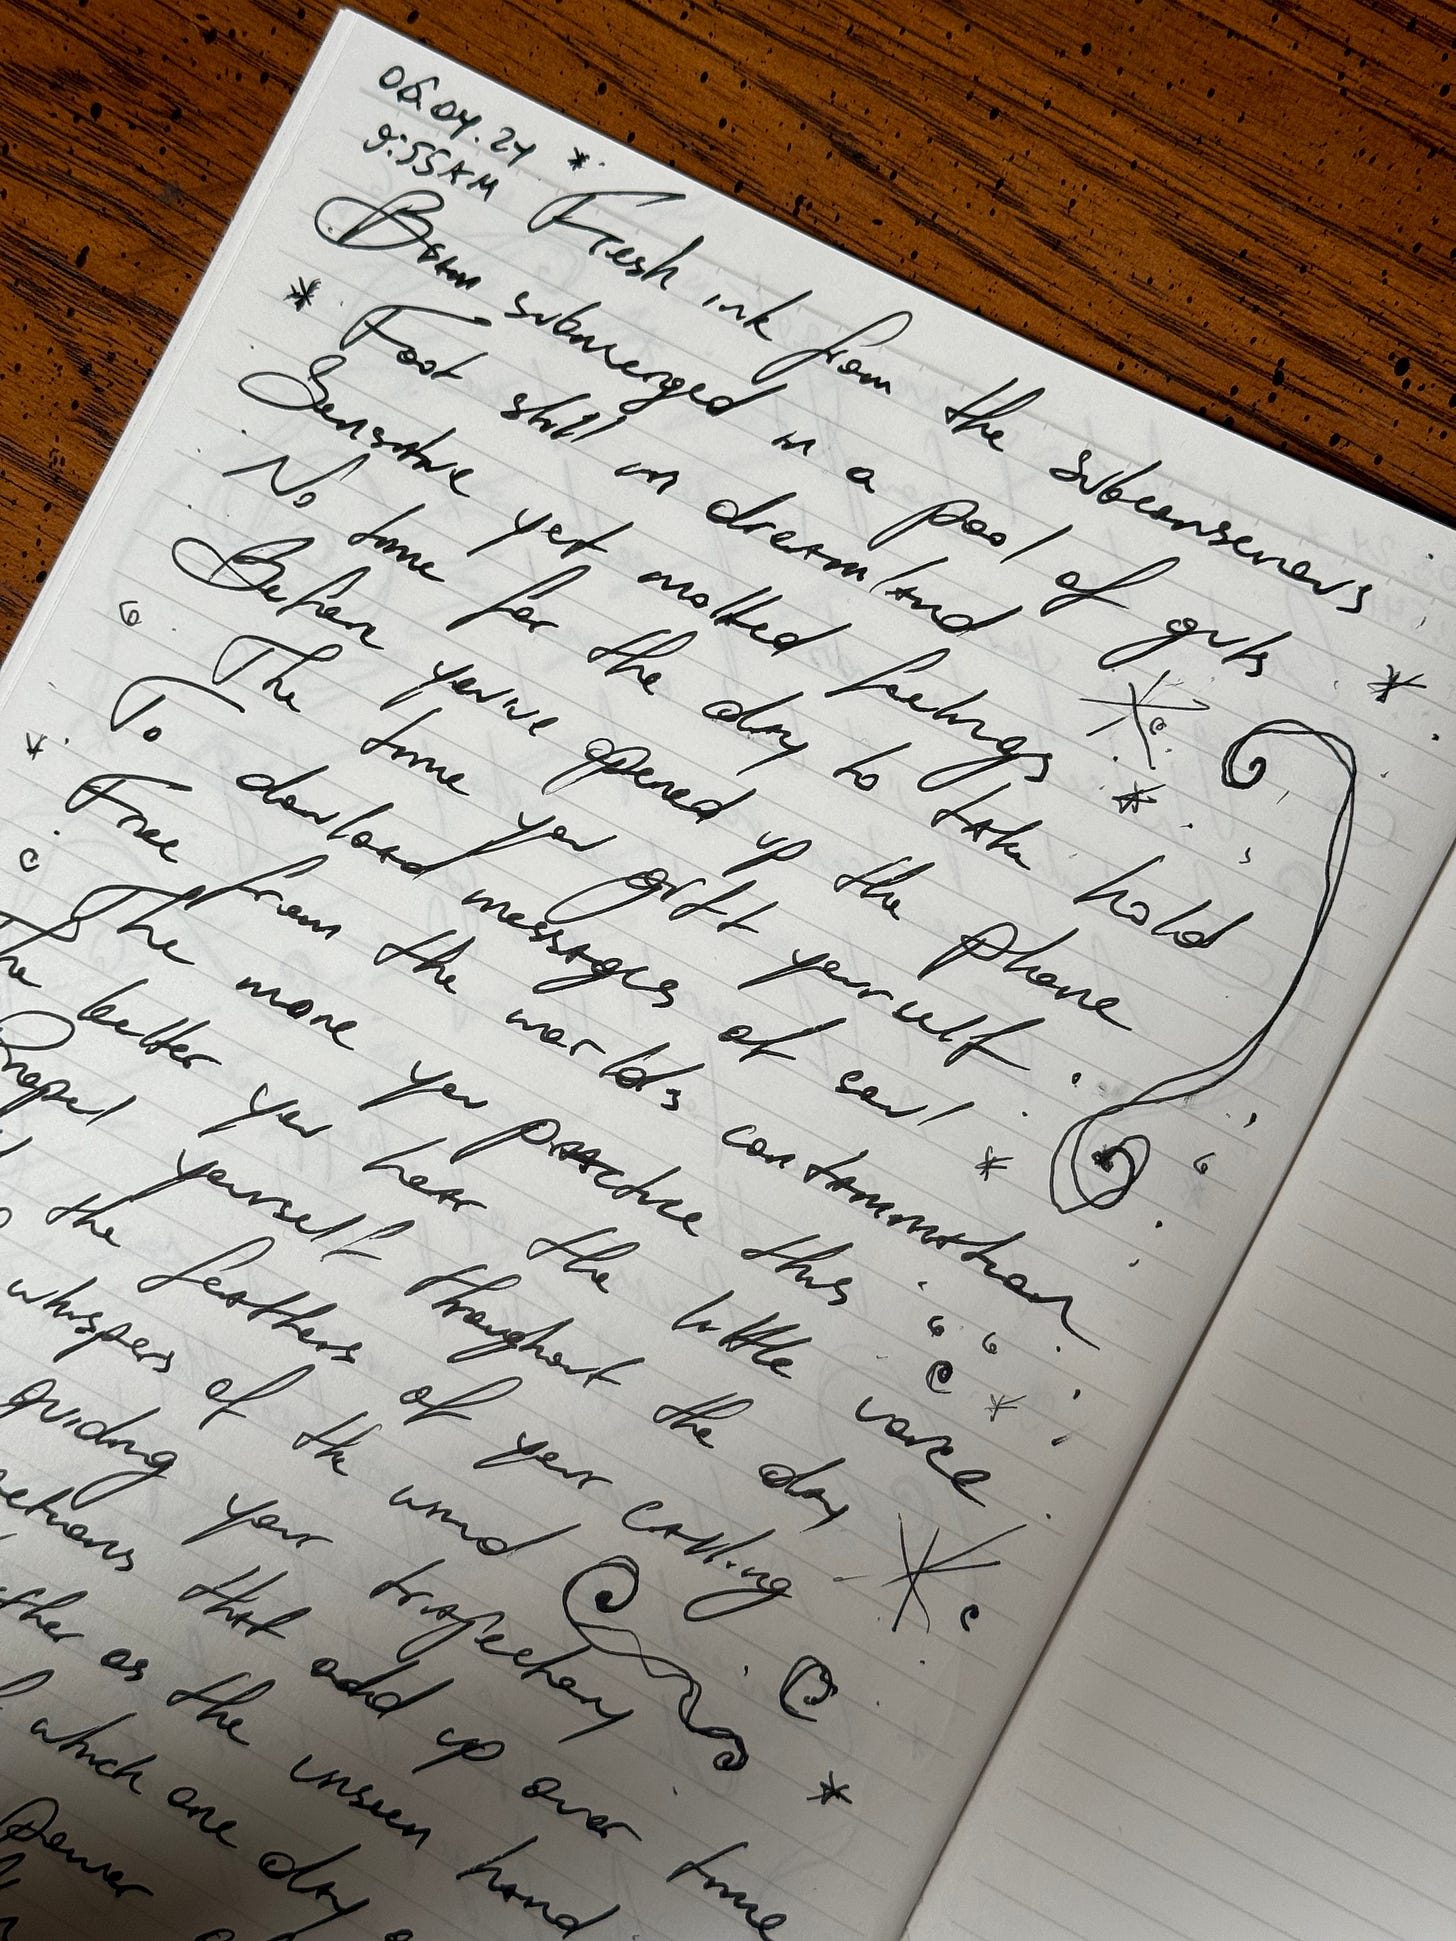 06.04.24
9:55AM
Fresh ink from the subconscious
Been submerged in a pool of guts
Foot still in dreamland
Sensitive yet molted feelings
No time for the day to take hold
Before you've opened up the phone
The time you gift yourself
To download messages of soul
Free from the world's contamination
The more you practice this
The better you hear the little voice
Propel yourself throughout the day
the feathers of your calling
whispers of the wind
guiding your trajectory
that add up over time
as the unseen hand
which one day
power